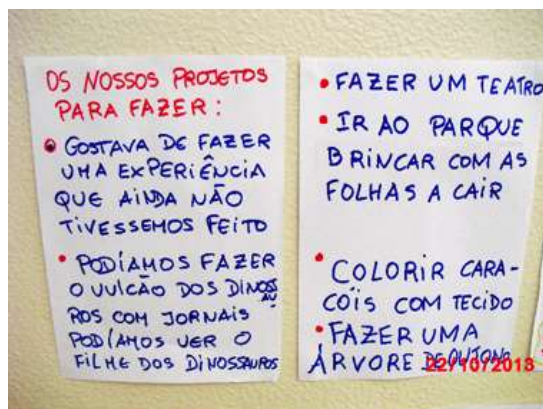 OS NOSSOS PROJETOS
PARA FAZER:
• GOSTAVA DE FAZER
UMA EXPERIÊNCIA
QUE AINDA NÃO
TIVESSEMOS FEITO
• PODÍAMOS FAZER
O VULCÃO DOS DINOSSAU
ROS COM JORNAIS
PODÍAMOS VER O
FILME DOS DINOSSAUROS
• FAZER UM TEATRO
• IR AO PARQUE
BRINCAR COM AS
FOLHAS A CAIR
• COLORIR CARA-
CÓIS COM TECIDO
• FAZER UMA
ÁRVORE DE OUTONO
22/10/2013